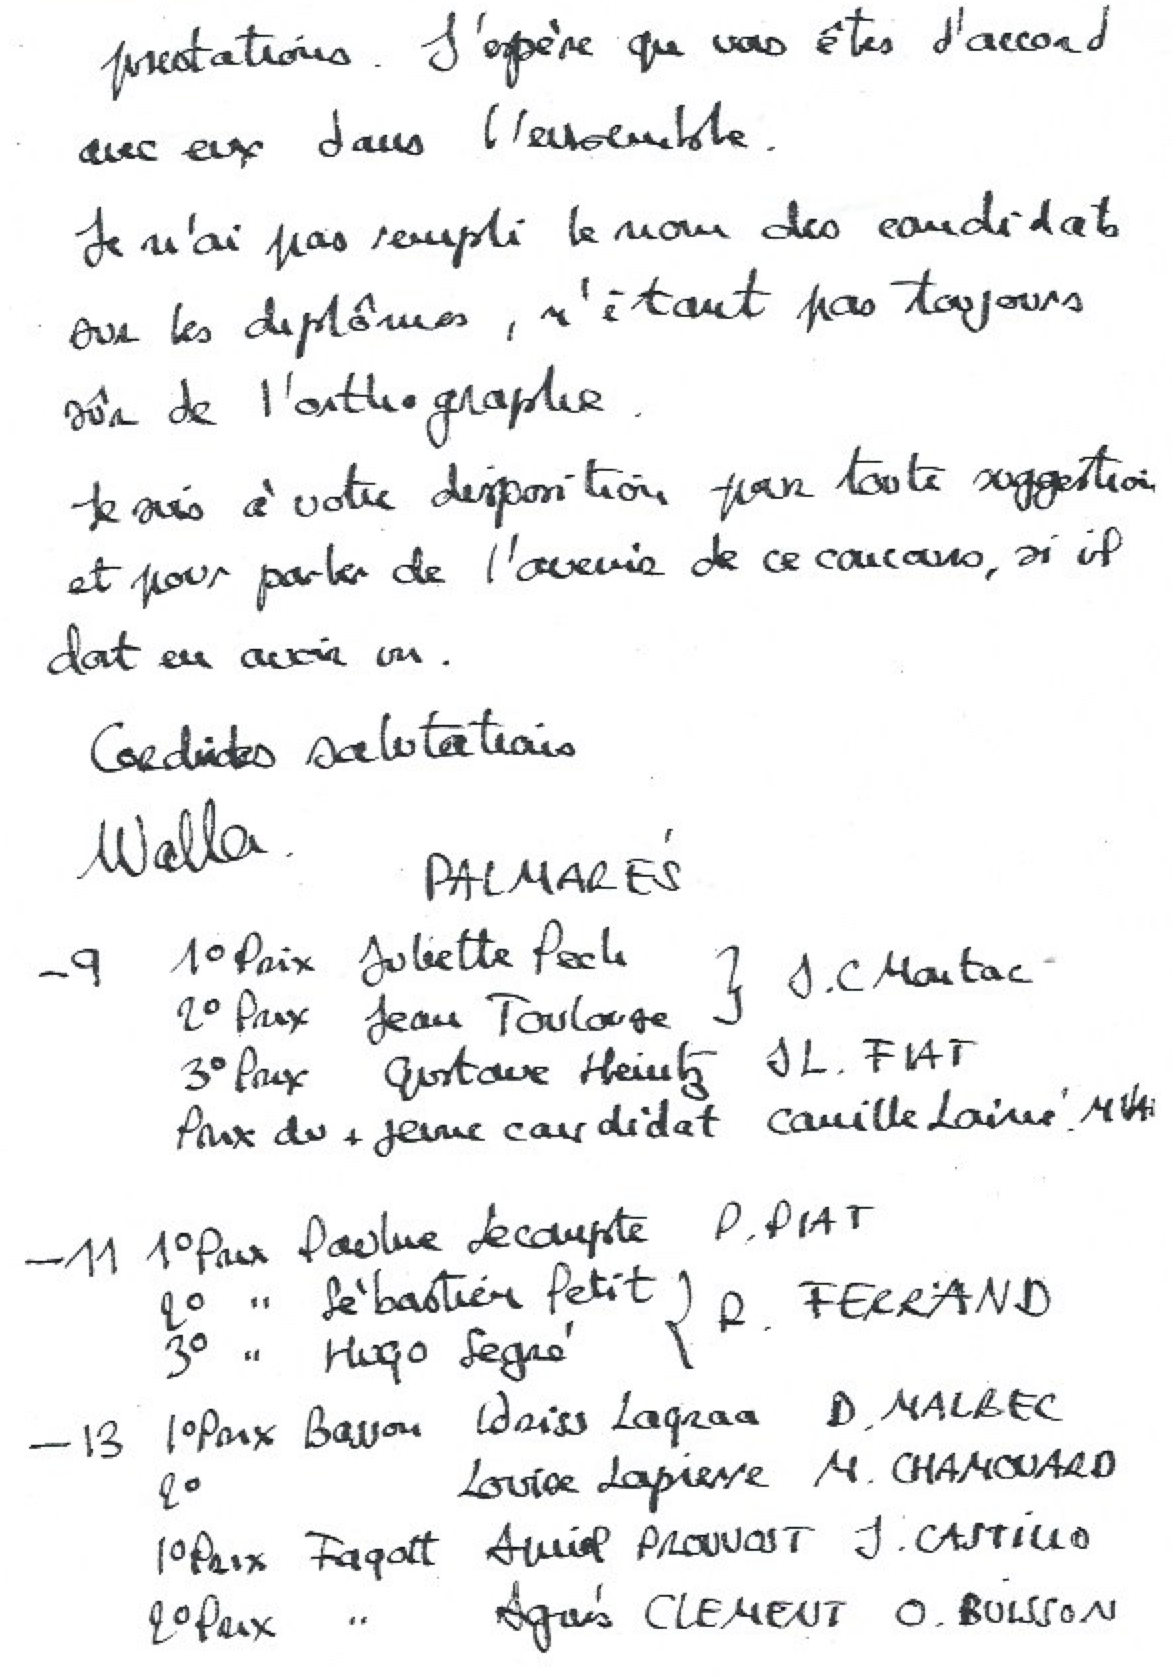 prestations. J'espère que vous êtes d'accord
avec eux dans l'ensemble.
Je n'ai pas rempli le nom des candidats
sur les diplômes, n'étant pas toujours
sûr de l'orthographe.
Je suis à votre disposition pour toute suggestion
et pour parler de l'avenir de ce concours, si il
doit en avoir un.
Cordiales salutations
Walla.
PALMARÉS
-9 1° Prix Juliette Pech } J.C Montac
2° Prix Jean Toulouse
3° Prix Gustave Heintz JL. FIAT
Prix du + jeune candidat Camille Lainé.
-11 1° Prix Pauline Lecompte P. PIAT
2° " Sébastien Petit } R. FERRAND
3° " Hugo Segré
-13 1° Prix Basson Idriss Lagraa D. MALBEC
2° Louise Lapierre M. CHAMOUARD
1° Prix Fagott Amiel PROUVOST J. CASTILLO
2° Prix " Agnès CLEMENT O. BUISSON